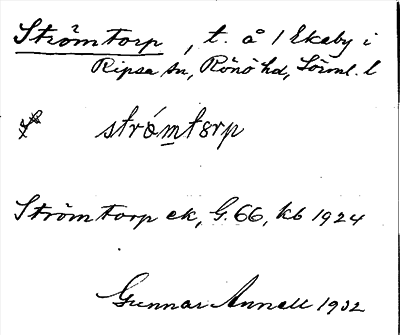 Strömtorp, t. å 1 Ekeby i
Ripsa sn, Rönö hd, Sörml. l
strömtorp
Strömtorp ek, G. 66, kb 1924
Gunnar Annell 1932